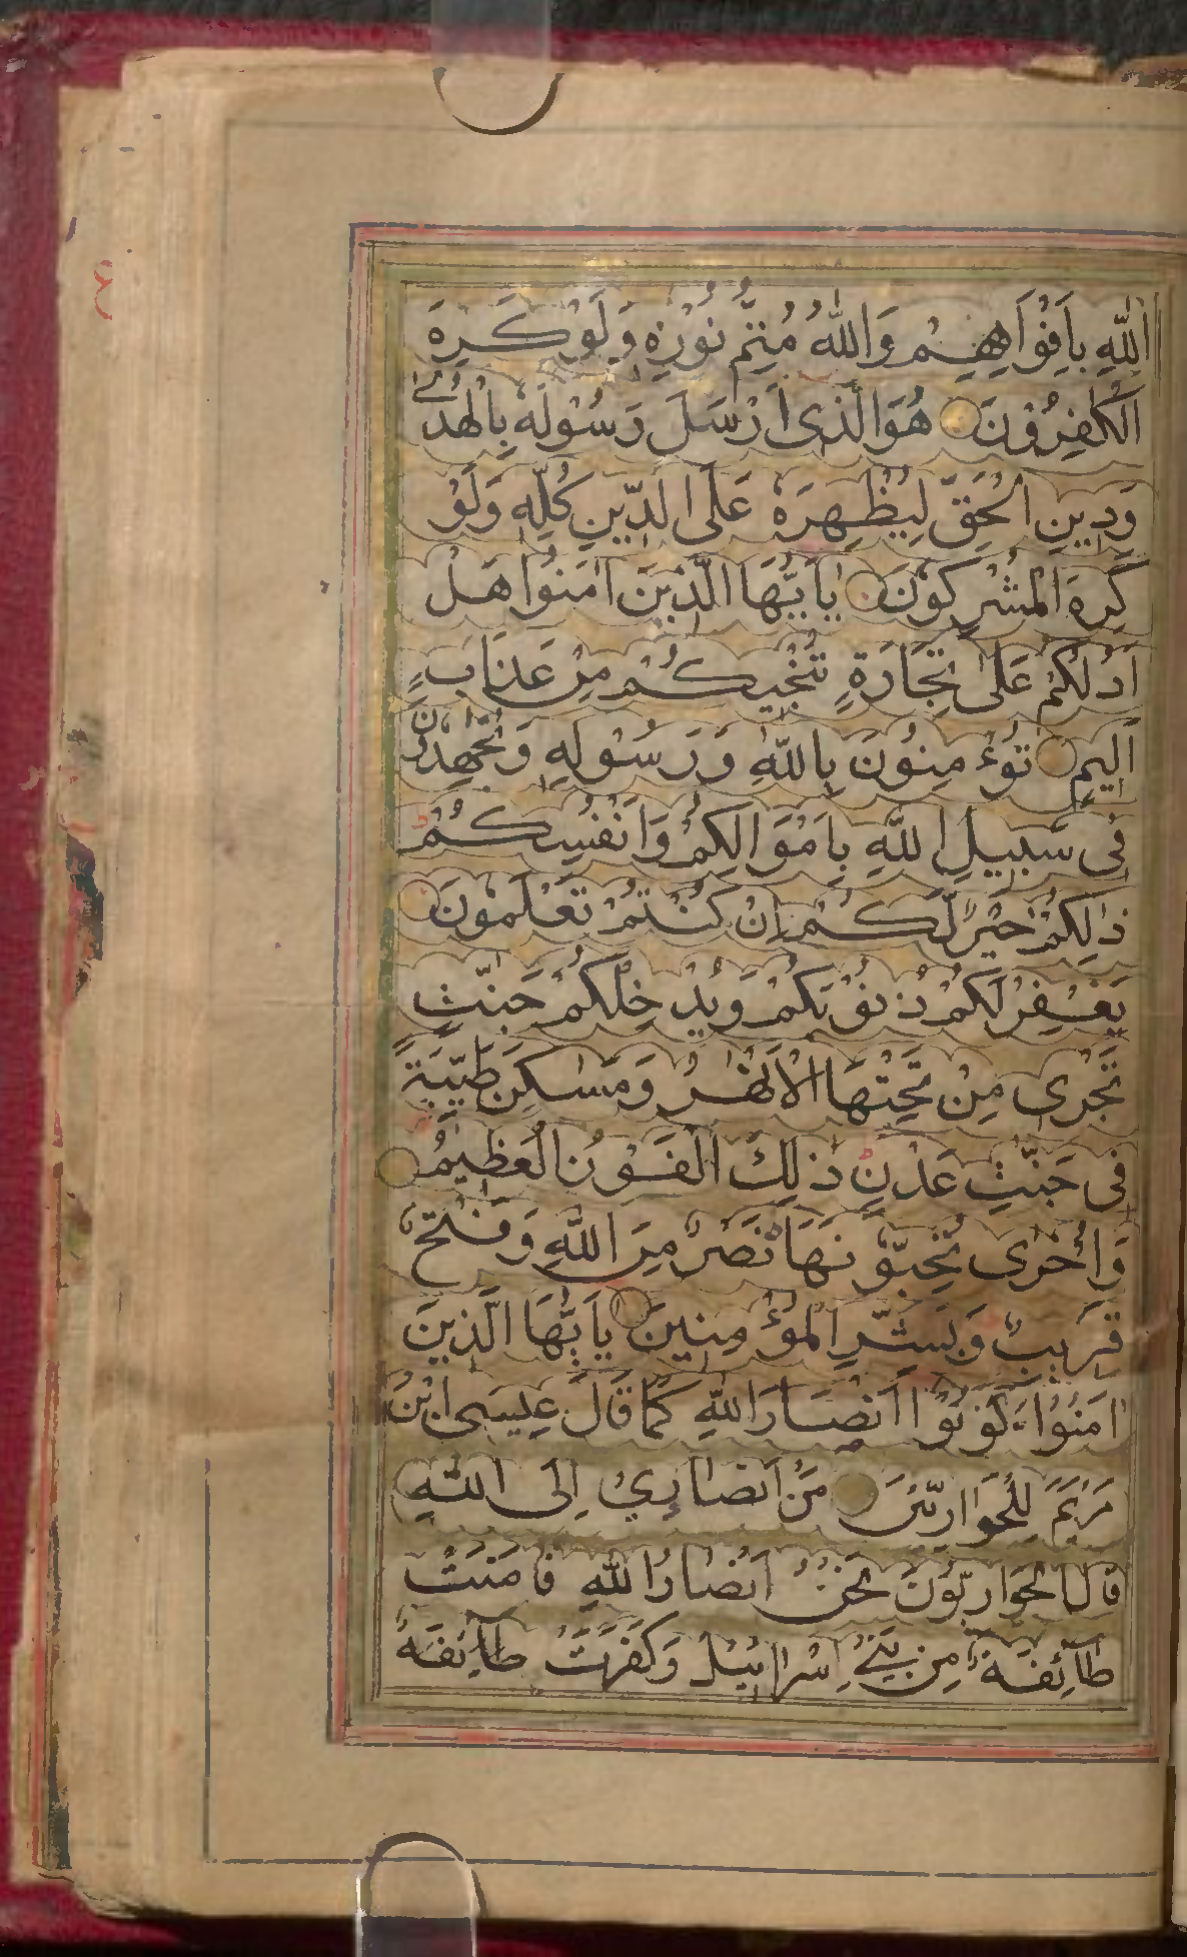 اللهِ بِاَفْوَاهِهِمْ وَاللهُ مُتِمُّ نُوْرِهٖ وَلَوْ كَرِهَ
الْكٰفِرُوْنَ هُوَ الَّذِی اَرْسَلَ رَسُوْلَهٗ بِالْهُدٰی
وَدِیْنِ الْحَقِّ لِیُظْهِرَهٗ عَلَی الدِّیْنِ كُلِّهٖ وَلَوْ
كَرِهَ الْمُشْرِكُوْنَ یٰاَیُّهَا الَّذِیْنَ اٰمَنُوْا هَلْ
اَدُلُّكُمْ عَلٰی تِجَارَةٍ تُنْجِیْكُمْ مِنْ عَذَابٍ
اَلِیْمٍ تُؤْمِنُوْنَ بِاللهِ وَرَسُوْلِهٖ وَتُجٰهِدُوْنَ
فِی سَبِیْلِ اللهِ بِاَمْوَالِكُمْ وَاَنْفُسِكُمْ ط
ذٰلِكُمْ خَیْرٌ لَّكُمْ اِنْ كُنْتُمْ تَعْلَمُوْنَ
یَغْفِرْ لَكُمْ ذُنُوْبَكُمْ وَیُدْخِلْكُمْ جَنّٰتٍ
تَجْرِی مِنْ تَحْتِهَا الْاَنْهٰرُ وَمَسٰكِنَ طَیِّبَةً
فِی جَنّٰتِ عَدْنٍ ط ذٰلِكَ الْفَوْزُ الْعَظِیْمُ
وَاُخْرٰی تُحِبُّوْنَهَا نَصْرٌ مِنَ اللهِ وَفَتْحٌ
قَرِیْبٌ وَبَشِّرِ الْمُؤْمِنِیْنَ یٰاَیُّهَا الَّذِیْنَ
اٰمَنُوْا كُوْنُوْا اَنْصَارَ اللهِ كَمَا قَالَ عِیْسَی ابْنُ
مَرْیَمَ لِلْحَوَارِیّٖنَ مَنْ اَنْصَارِیْ اِلَی اللهِ
قَالَ الْحَوَارِیُّوْنَ نَحْنُ اَنْصَارُ اللهِ فَاٰمَنَتْ
طَآئِفَةٌ مِنْ بَنِیْ اِسْرَائِیْلَ وَكَفَرَتْ طَآئِفَةٌ